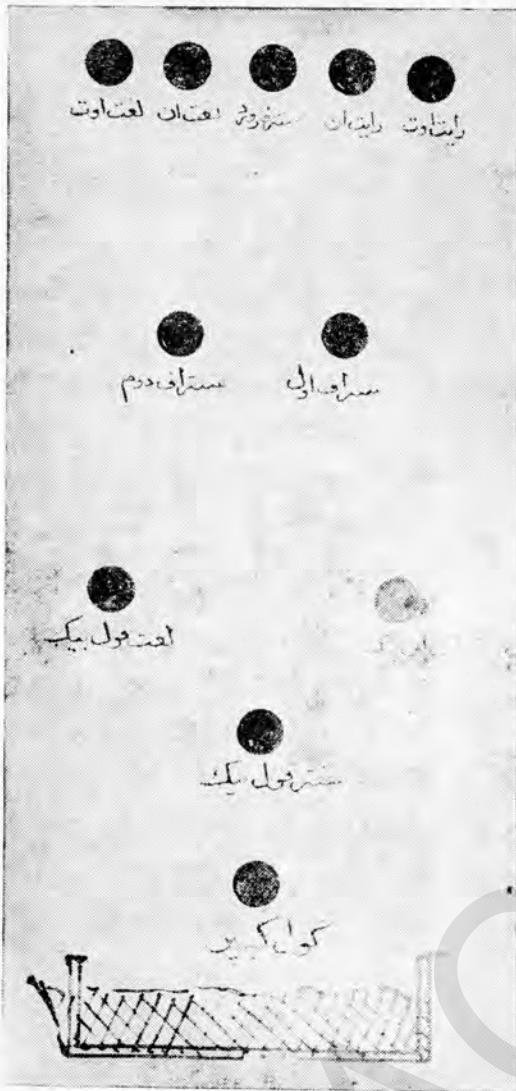 رایت اوت رایت ان سنترفرورد لعت ان لعت اوت
سنتراف اول سنتراف دوم
لعت فول بیک
سنتر فول بیک
گول کیپر